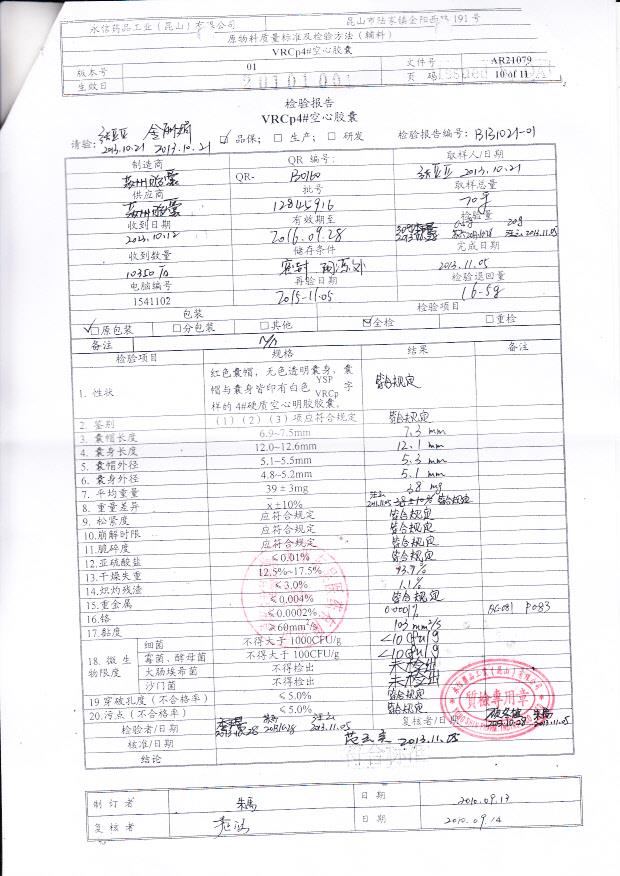 永信药品工业（昆山）有限公司 昆山市陆家镇金阳西路 191 号
原物料质量标准及检验方法（辅料）
VRCp4#空心胶囊
版本号 01 文件号 AR21079
生效日 20101001 页 码 10 of 11
检验报告
VRCp4#空心胶囊
请验: 2013.10.21 2013.10.21 ☑ 品保; □ 生产; □ 研发 检验报告编号: B131021-01
制造商 QR 编号: 取样人/日期
苏州胶囊 QR- B0160 2013.10.21
供应商 批号 取样总量
苏州胶囊 12845916 70g
收到日期 有效期至 检验量
2013.10.12 2016.09.28 20g 2013.11.05
收到数量 储存条件 完成日期
10350 密封 阴凉处 2013.11.05
电脑编号 再验日期 检验退回量
1541102 2015-11.05 16.5g
包装 检验项目
☑原包装 □分包装 □其他 ☑全检 □重检
备注 N/A
检验项目 规格 结果 备注
1. 性状 红色囊帽，无色透明囊身，囊帽与囊身皆印有白色 YSP VRCp 字样的 4#硬质空心明胶胶囊。 皆合规定
2. 鉴别 (1) (2) (3) 项应符合规定 皆合规定
3. 囊帽长度 6.9~7.5mm 7.3 mm
4. 囊身长度 12.0~12.6mm 12.1 mm
5. 囊帽外径 5.1~5.5mm 5.3 mm
6. 囊身外径 4.8~5.2mm 5.1 mm
7. 平均重量 39 ± 3mg 38 mg
8. 重量差异 x̄ ±10% 2013.11.05 38±10% 皆合规定
9. 松紧度 应符合规定 皆合规定
10.崩解时限 应符合规定 皆合规定
11.脆碎度 应符合规定 皆合规定
12.亚硫酸盐 ≤0.01% 皆合规定
13.干燥失重 12.5%~17.5% 13.9%
14.炽灼残渣 ≤3.0% 1.1%
15.重金属 ≤0.004% 皆合规定
16.铬 ≤0.0002% 0.0001%
17.黏度 ≥60mm²/s 103 mm²/s
18. 微生物限度 细菌 不得大于 1000CFU/g <10 cfu/g
霉菌、酵母菌 不得大于 100CFU/g <10 cfu/g
大肠埃希菌 不得检出 未检出
沙门菌 不得检出 未检出
19 穿破孔度（不合格率） ≤5.0% 皆合规定
20.污点（不合格率） ≤5.0% 皆合规定
检验者/日期 2013.10.28 2013.10.28 2013.11.05 复核者/日期 2013.10.28 2013.11.05
核准/日期 2013.11.05
结论 符合标准
永信药品工业（昆山）有限公司
質檢專用章
制订者 日期 2010.09.13
复核者 日期 2010.09.14